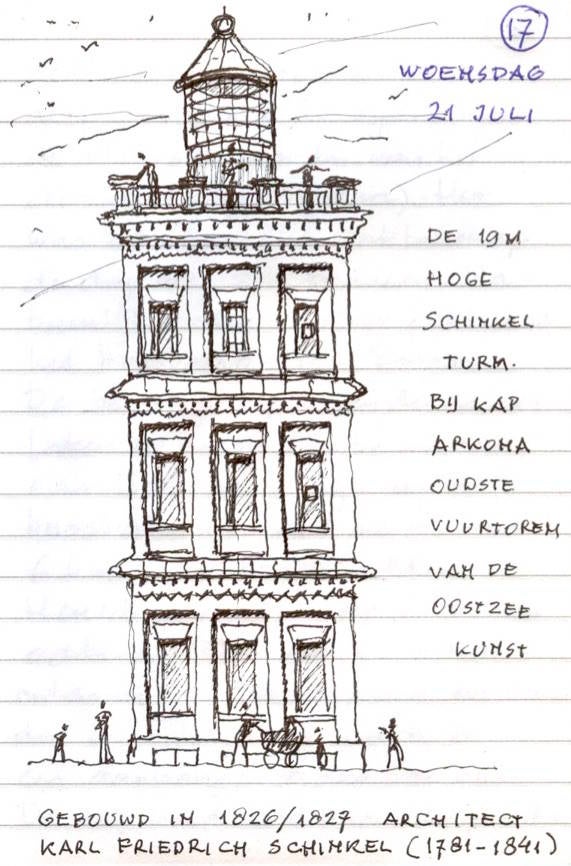 17
WOENSDAG
21 JULI
DE 19M
HOGE
SCHINKEL
TURM.
BIJ KAP
ARKONA
OUDSTE
VUURTOREN
VAN DE
OOSTZEE
KUNST
GEBOUWD IN 1826/1827 ARCHITECT
KARL FRIEDRICH SCHINKEL (1781-1841)